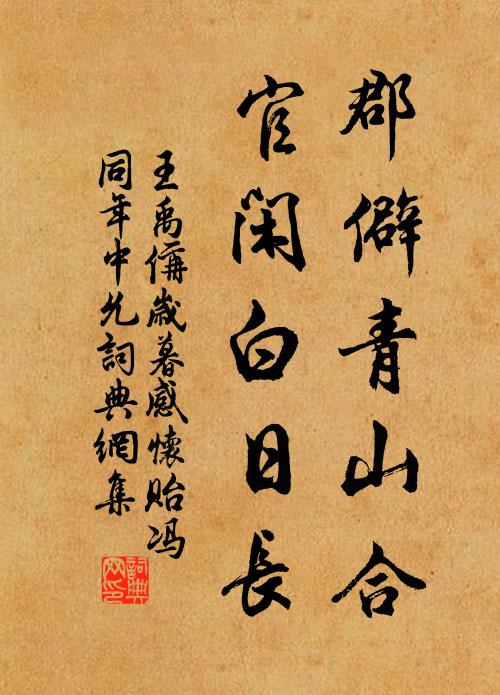 郡僻青山合
官閑白日長
王禹偁歲暮感懷貽馮
同年中允詞典網集
詞典网印